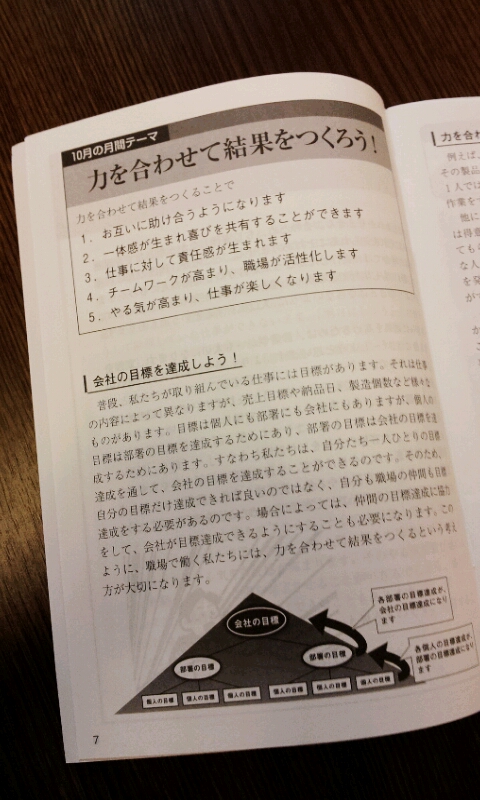 10月の月間テーマ
力を合わせて結果をつくろう！
力を合わせて結果をつくることで
1．お互いに助け合うようになります
2．一体感が生まれ喜びを共有することができます
3．仕事に対して責任感が生まれます
4．チームワークが高まり、職場が活性化します
5．やる気が高まり、仕事が楽しくなります
会社の目標を達成しよう！
普段、私たちが取り組んでいる仕事には目標があります。それは仕事
の内容によって異なりますが、売上目標や納品日、製造個数など様々な
ものがあります。目標は個人にも部署にも会社にもありますが、個人の
目標は部署の目標を達成するためにあり、部署の目標は会社の目標を達
成するためにあります。すなわち私たちは、自分たち一人ひとりの目標
達成を通して、会社の目標を達成することができるのです。そのため、
自分の目標だけ達成できれば良いのではなく、自分も職場の仲間も目標
達成をする必要があるのです。場合によっては、仲間の目標達成に協力
をして、会社が目標達成できるようにすることも必要になります。この
ように、職場で働く私たちには、力を合わせて結果をつくるという考え
方が大切になります。
会社の目標
各部署の目標達成が、
会社の目標達成になり
ます
部署の目標
部署の目標
各個人の目標達成が、
部署の目標達成になり
ます
個人の目標
個人の目標
個人の目標
個人の目標
個人の目標
個人の目標
7
力を合わ
例えば、
その製品
1人では
作業を
他に
は得意
ても
な人
を発
が
か